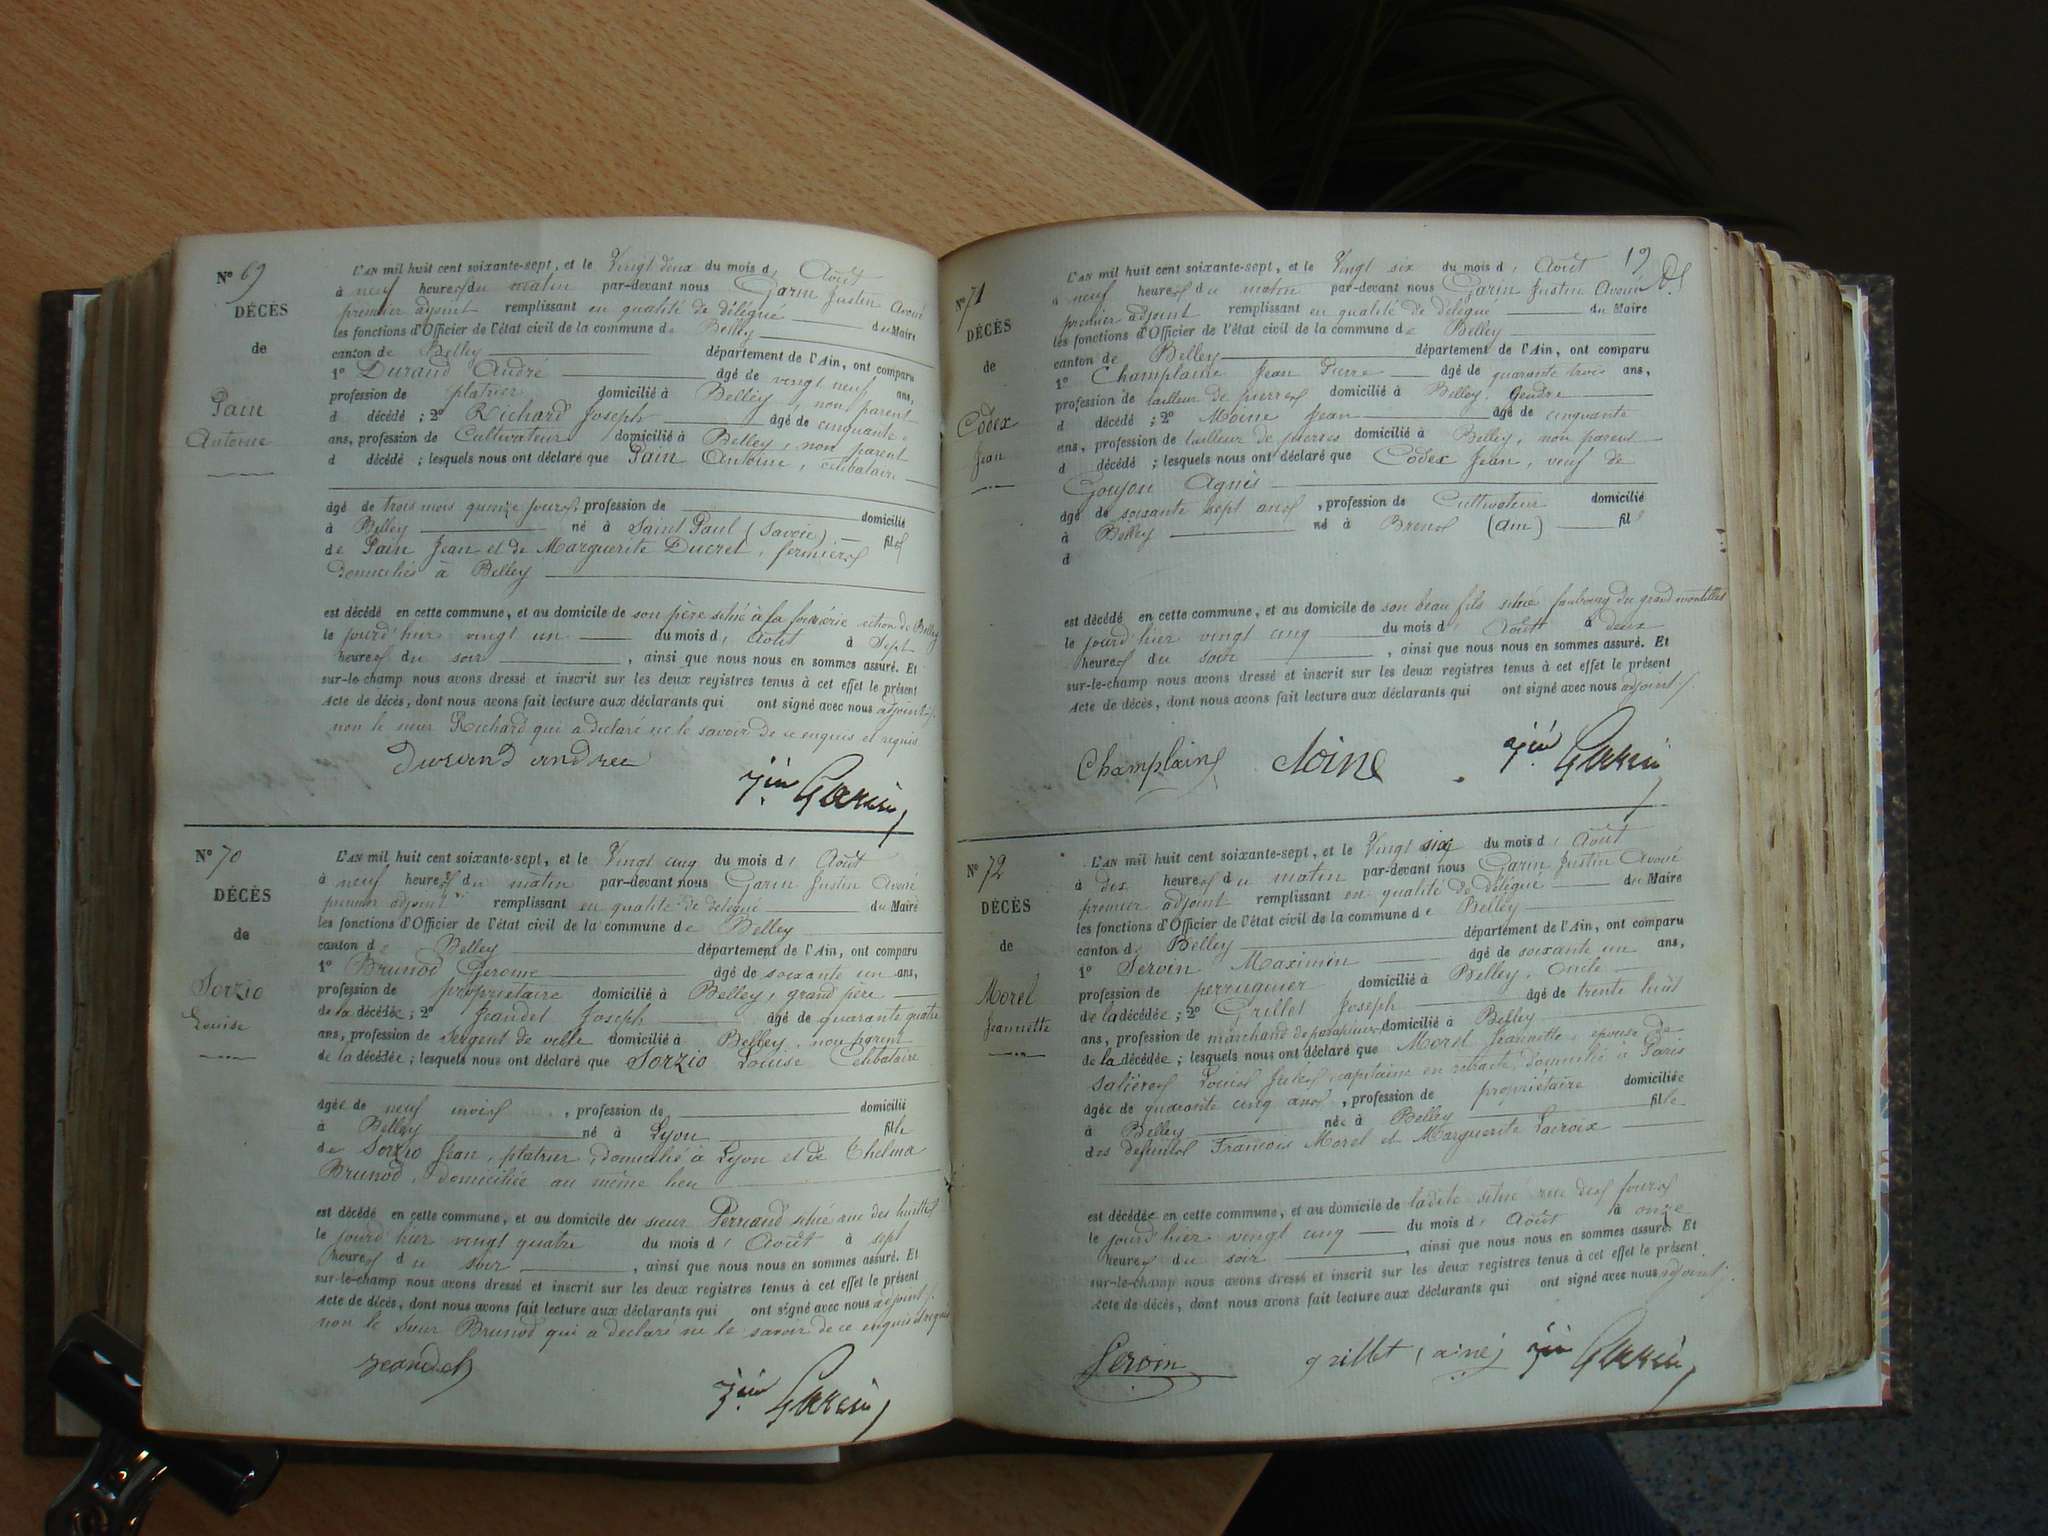 N° 69
DÉCÈS
de
Pain
Antoine
L'AN mil huit cent soixante-sept, et le Vingt deux du mois d' Août
à neuf heures du matin par-devant nous Garin Justin Avoué
premier adjoint remplissant en qualité de délégué du Maire
les fonctions d'Officier de l'état civil de la commune de Belley
canton de Belley département de l'Ain, ont comparu
1° Durand André âgé de vingt neuf ans,
profession de platrier domicilié à Belley, non parent
d décédé ; 2° Richard Joseph âgé de cinquante
ans, profession de Cultivateur domicilié à Belley, non parent
d décédé ; lesquels nous ont déclaré que Pain Antoine, celibataire
âgé de trois mois quinze jours, profession de domicilié
à Belley né à Saint Paul (Savoie) fils
de Pain Jean et de Marguerite Ducret, fermiers
domiciliés à Belley
est décédé en cette commune, et au domicile de son père situé à la section de Belley
le jourd'hier vingt un du mois d' Août à Sept
heures du soir, ainsi que nous nous en sommes assuré. Et
sur-le-champ nous avons dressé et inscrit sur les deux registres tenus à cet effet le présent
acte de décès, dont nous avons fait lecture aux déclarants qui ont signé avec nous adjoint
non le sieur Richard qui a déclaré ne le savoir de ce enquis et requis
Durand andree
Jin Garin
N° 70
DÉCÈS
de
Sorzio
Louise
L'AN mil huit cent soixante-sept, et le Vingt cinq du mois d' Août
à neuf heures du matin par-devant nous Garin Justin Avoué
premier adjoint remplissant en qualité de délégué du Maire
les fonctions d'Officier de l'état civil de la commune de Belley
canton de Belley département de l'Ain, ont comparu
1° Brunod Gerome âgé de soixante un ans,
profession de propriétaire domicilié à Belley, grand père
de la décédée ; 2° Jeandet Joseph âgé de quarante quatre
ans, profession de Sergent de ville domicilié à Belley, non parent
de la décédée ; lesquels nous ont déclaré que Sorzio Louise Celibataire
âgée de neuf mois, profession de domicilié
à Belley né à Lyon fille
de Sorzio Jean, platrier, domicilié à Lyon et de Thelma
Brunod, domiciliée au même lieu
est décédé en cette commune, et au domicile du sieur Pernaud situé rue des
le jourd'hier vingt quatre du mois d' Août à sept
heures du soir, ainsi que nous nous en sommes assuré. Et
sur-le-champ nous avons dressé et inscrit sur les deux registres tenus à cet effet le présent
acte de décès, dont nous avons fait lecture aux déclarants qui ont signé avec nous adjoint
non le sieur Brunod qui a déclaré ne le savoir de ce enquis et requis
Jeandet
Jin Garin
19
N° 71
DÉCÈS
de
Codex
Jean
L'AN mil huit cent soixante-sept, et le Vingt six du mois d' Août
à neuf heures du matin par-devant nous Garin Justin Avoué
premier adjoint remplissant en qualité de délégué du Maire
les fonctions d'Officier de l'état civil de la commune de Belley
canton de Belley département de l'Ain, ont comparu
1° Champlaine Jean Pierre âgé de quarante trois ans,
profession de tailleur de pierres domicilié à Belley, Gendre
d décédé ; 2° Moine Jean âgé de cinquante
ans, profession de tailleur de pierres domicilié à Belley, non parent
d décédé ; lesquels nous ont déclaré que Codex Jean, veuf de
Goujon Agnès
âgé de soixante sept ans, profession de Cultivateur domicilié
à Belley né à Brens (Ain) fils
d
est décédé en cette commune, et au domicile de son beau fils situé faubourg du grand
le jourd'hier vingt cinq du mois d' Août à deux
heures du soir, ainsi que nous nous en sommes assuré. Et
sur-le-champ nous avons dressé et inscrit sur les deux registres tenus à cet effet le présent
acte de décès, dont nous avons fait lecture aux déclarants qui ont signé avec nous adjoint
Champlaine Moine Jin Garin
N° 72
DÉCÈS
de
Morel
Jeannette
L'AN mil huit cent soixante-sept, et le Vingt six du mois d' Août
à dix heures du matin par-devant nous Garin Justin Avoué
premier adjoint remplissant en qualité de délégué du Maire
les fonctions d'Officier de l'état civil de la commune de Belley
canton de Belley département de l'Ain, ont comparu
1° Servin Maximin âgé de soixante un ans,
profession de perruquier domicilié à Belley, Oncle
de la décédée ; 2° Grillet Joseph âgé de trente huit
ans, profession de marchand de parapluies domicilié à Belley
de la décédée ; lesquels nous ont déclaré que Morel Jeannette, épouse de
Salières Louis Jules, capitaine en retraite, domicilié à Paris
âgée de quarante cinq ans, profession de propriétaire domiciliée
à Belley née à Belley fille
des defunts François Morel et Marguerite Lacroix
est décédée en cette commune, et au domicile de ladite situé rue des fours
le jourd'hier vingt cinq du mois d' Août à onze
heures du soir, ainsi que nous nous en sommes assuré. Et
sur-le-champ nous avons dressé et inscrit sur les deux registres tenus à cet effet le présent
acte de décès, dont nous avons fait lecture aux déclarants qui ont signé avec nous adjoint
Servin grillet (ainé) Jin Garin